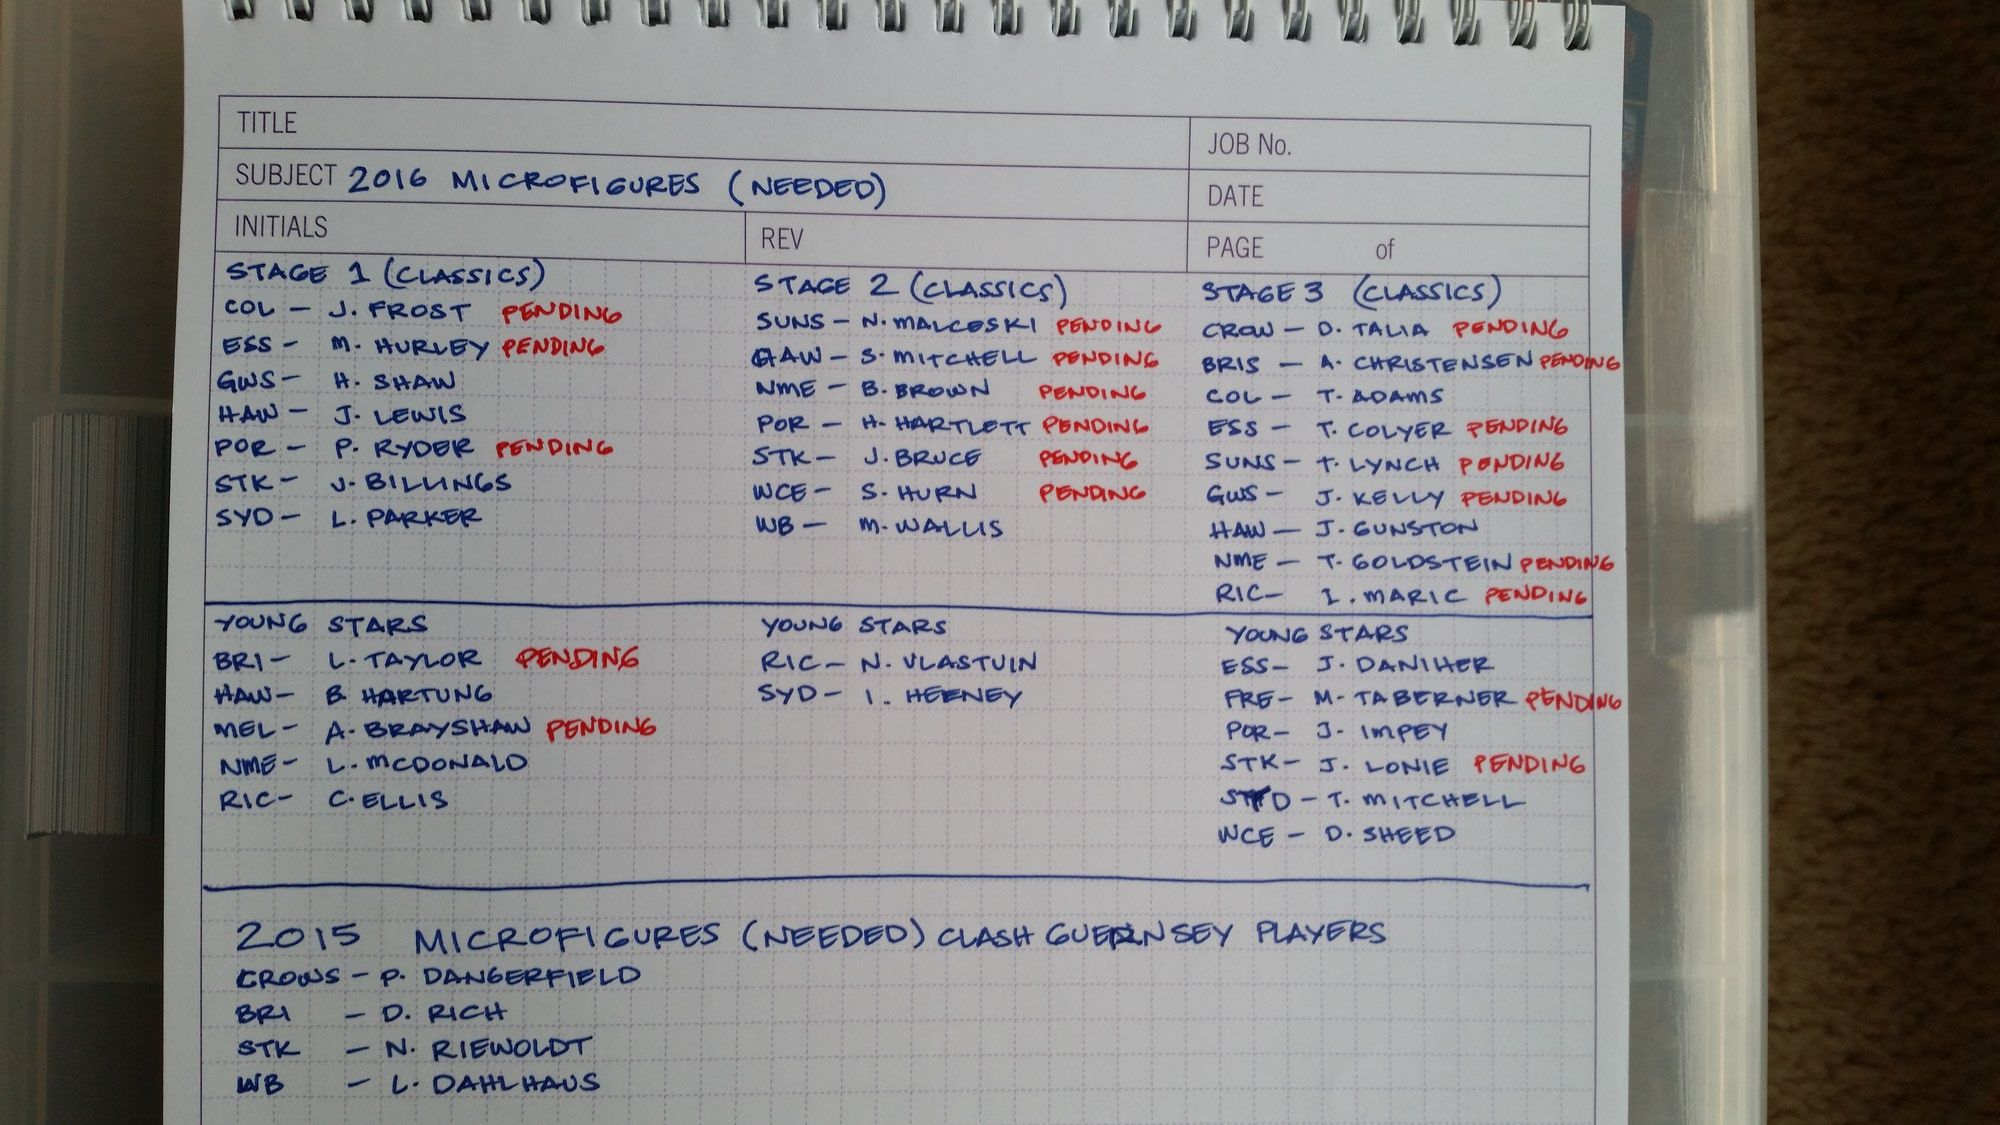 TITLE
JOB No.
SUBJECT 2016 MICROFIGURES (NEEDED)
DATE
INITIALS
REV
PAGE of
STAGE 1 (CLASSICS)
COL - J. FROST PENDING
ESS - M. HURLEY PENDING
GWS - H. SHAW
HAW - J. LEWIS
POR - P. RYDER PENDING
STK - J. BILLINGS
SYD - L. PARKER
YOUNG STARS
BRI - L. TAYLOR PENDING
HAW - B. HARTUNG
MEL - A. BRAYSHAW PENDING
NME - L. MCDONALD
RIC - C. ELLIS
STAGE 2 (CLASSICS)
SUNS - N. MALCESKI PENDING
HAW - S. MITCHELL PENDING
NME - B. BROWN PENDING
POR - H. HARTLETT PENDING
STK - J. BRUCE PENDING
WCE - S. HURN PENDING
WB - M. WALLIS
YOUNG STARS
RIC - N. VLASTUIN
SYD - I. HEENEY
STAGE 3 (CLASSICS)
CROW - D. TALIA PENDING
BRIS - A. CHRISTENSEN PENDING
COL - T. ADAMS
ESS - T. COLYER PENDING
SUNS - T. LYNCH PENDING
GWS - J. KELLY PENDING
HAW - J. GUNSTON
NME - T. GOLDSTEIN PENDING
RIC - I. MARIC PENDING
YOUNG STARS
ESS - J. DANIHER
FRE - M. TABERNER PENDING
POR - J. IMPEY
STK - J. LONIE PENDING
SYD - T. MITCHELL
WCE - D. SHEED
2015 MICROFIGURES (NEEDED) CLASH GUERNSEY PLAYERS
CROWS - P. DANGERFIELD
BRI - D. RICH
STK - N. RIEWOLDT
WB - L. DAHLHAUS